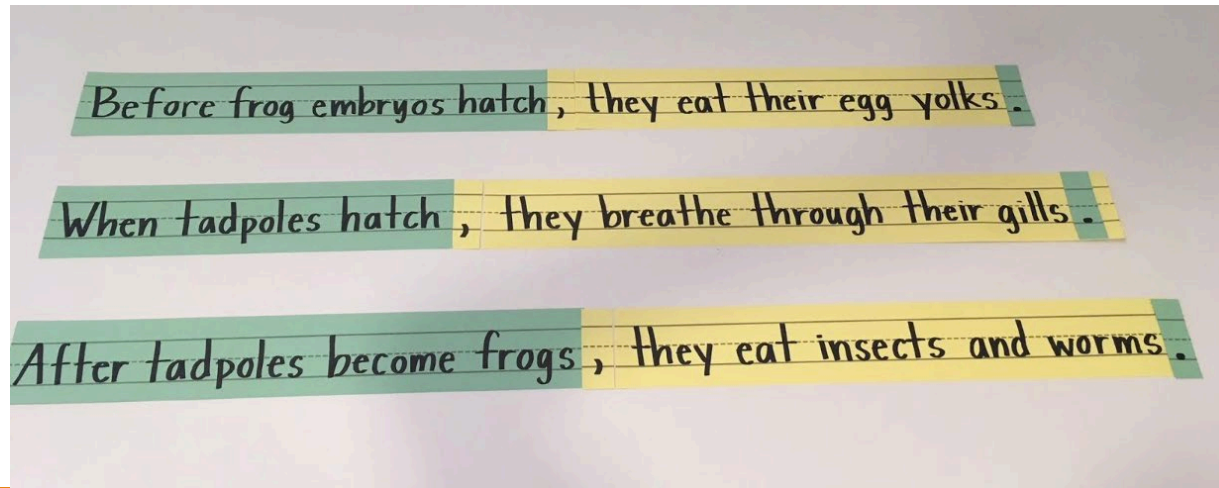 Before frog embryos hatch, they eat their egg yolks.
When tadpoles hatch, they breathe through their gills.
After tadpoles become frogs, they eat insects and worms.